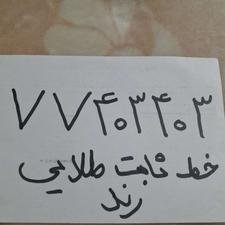 ۷۷۴۰۳۴۰۳
خط ثابت طلایی
رند